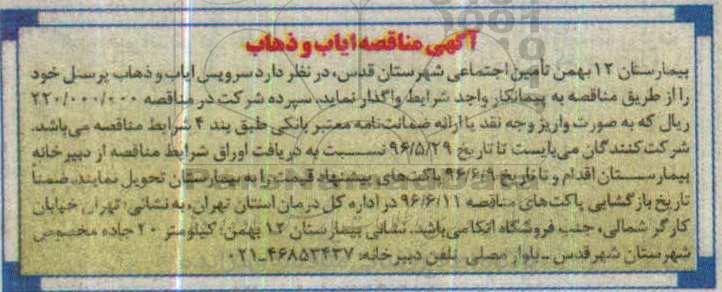 آگهی مناقصه ایاب و ذهاب
بیمارستان ۱۲ بهمن تأمین اجتماعی شهرستان قدس، در نظر دارد سرویس ایاب و ذهاب پرسنل خود
را از طریق مناقصه به پیمانکار واجد شرایط واگذار نماید. سپرده شرکت در مناقصه ۲۲۰/۰۰۰/۰۰۰
ریال که به صورت واریز وجه نقد یا ارائه ضمانت‌نامه معتبر بانکی طبق بند ۴ شرایط مناقصه می‌باشد.
شرکت‌کنندگان می‌بایست تا تاریخ ۹۶/۵/۲۹ نسبت به دریافت اوراق شرایط مناقصه از دبیرخانه
بیمارستان اقدام و تا تاریخ ۹۶/۶/۹ پاکت‌های پیشنهاد قیمت را به بیمارستان تحویل نمایند. ضمناً
تاریخ بازگشایی پاکت‌های مناقصه ۹۶/۶/۱۱ در اداره کل درمان استان تهران، به نشانی: تهران خیابان
کارگر شمالی، جنب فروشگاه اتکا می‌باشد. نشانی بیمارستان ۱۲ بهمن: کیلومتر ۲۰ جاده مخصوص
شهرستان شهرقدس ـ بلوار مصلی تلفن دبیرخانه: ۴۶۸۵۳۴۳۷-۰۲۱